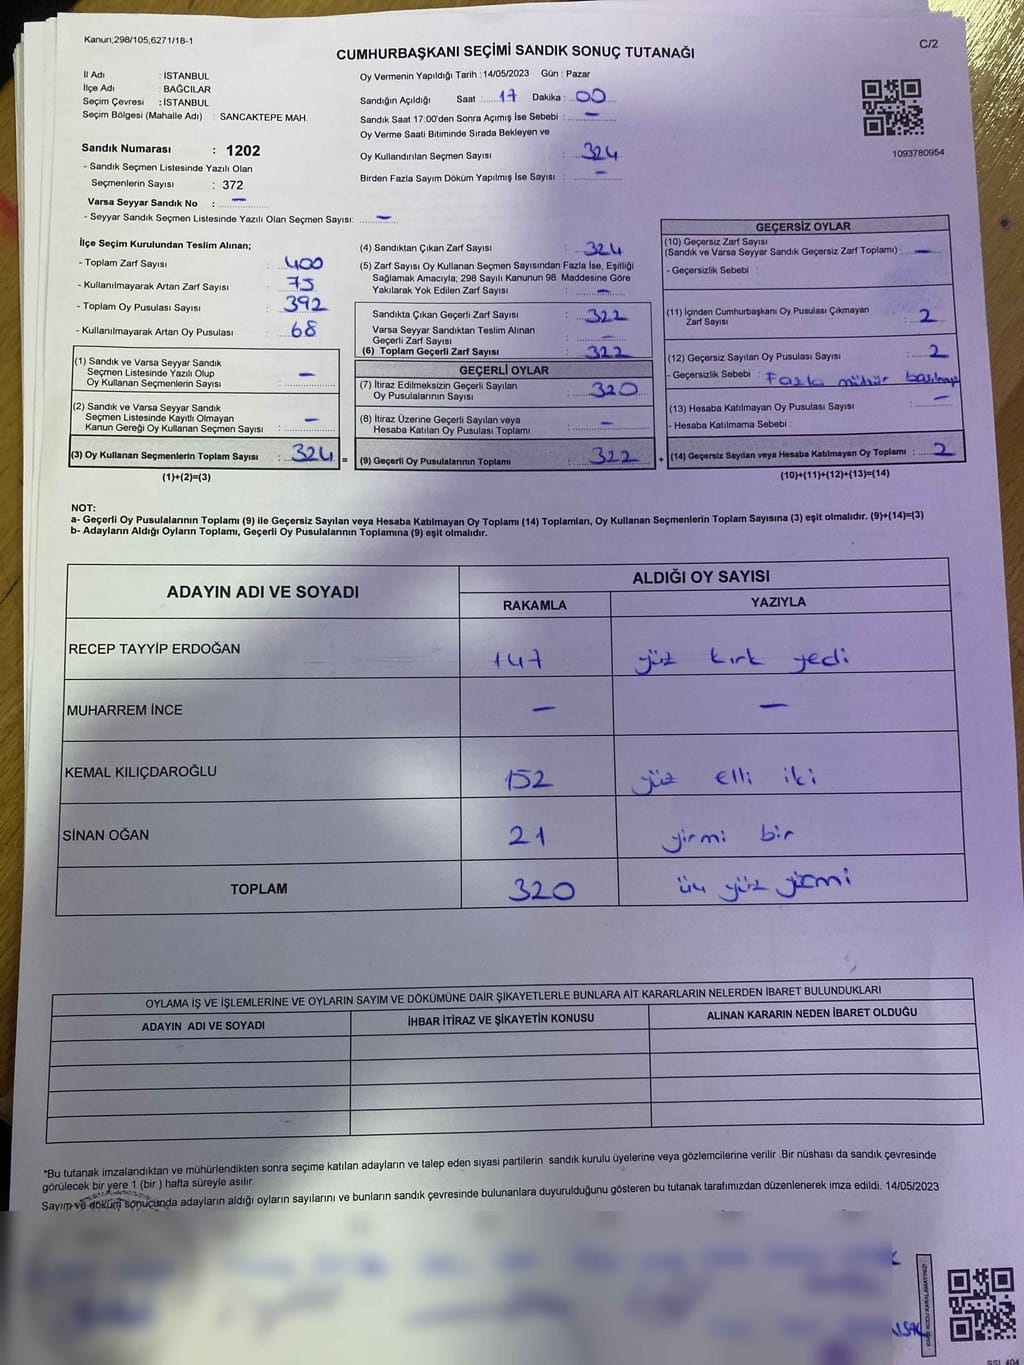 Kanun;298/105,6271/18-1
C/2
CUMHURBAŞKANI SEÇİMİ SANDIK SONUÇ TUTANAĞI
İl Adı : İSTANBUL
İlçe Adı : BAĞCILAR
Seçim Çevresi : İSTANBUL
Seçim Bölgesi (Mahalle Adı) : SANCAKTEPE MAH.
Oy Vermenin Yapıldığı Tarih : 14/05/2023 Gün : Pazar
Sandığın Açıldığı Saat : 17 Dakika : 00
Sandık Saat 17:00'den Sonra Açımış İse Sebebi : —
Oy Verme Saati Bitiminde Sırada Bekleyen ve
Oy Kullandırılan Seçmen Sayısı : 324
Birden Fazla Sayım Döküm Yapılmış İse Sayısı : —
1093780954
Sandık Numarası : 1202
- Sandık Seçmen Listesinde Yazılı Olan
Seçmenlerin Sayısı : 372
Varsa Seyyar Sandık No : —
- Seyyar Sandık Seçmen Listesinde Yazılı Olan Seçmen Sayısı: —
İlçe Seçim Kurulundan Teslim Alınan;
- Toplam Zarf Sayısı : 400
- Kullanılmayarak Artan Zarf Sayısı : 75
- Toplam Oy Pusulası Sayısı : 392
- Kullanılmayarak Artan Oy Pusulası : 68
(1) Sandık ve Varsa Seyyar Sandık
Seçmen Listesinde Yazılı Olup
Oy Kullanan Seçmenlerin Sayısı : —
(2) Sandık ve Varsa Seyyar Sandık
Seçmen Listesinde Kayıtlı Olmayan
Kanun Gereği Oy Kullanan Seçmen Sayısı : —
(3) Oy Kullanan Seçmenlerin Toplam Sayısı : 324 =
(1)+(2)=(3)
(4) Sandıktan Çıkan Zarf Sayısı : 324
(5) Zarf Sayısı Oy Kullanan Seçmen Sayısından Fazla İse, Eşitliği
Sağlamak Amacıyla; 298 Sayılı Kanunun 98. Maddesine Göre
Yakılarak Yok Edilen Zarf Sayısı : —
Sandıkta Çıkan Geçerli Zarf Sayısı : 322
Varsa Seyyar Sandıktan Teslim Alınan
Geçerli Zarf Sayısı : —
(6) Toplam Geçerli Zarf Sayısı : 322
GEÇERLİ OYLAR
(7) İtiraz Edilmeksizin Geçerli Sayılan
Oy Pusulalarının Sayısı : 320
(8) İtiraz Üzerine Geçerli Sayılan veya
Hesaba Katılan Oy Pusulası Toplamı : —
(9) Geçerli Oy Pusulalarının Toplamı : 322 +
GEÇERSİZ OYLAR
(10) Geçersiz Zarf Sayısı
(Sandık ve Varsa Seyyar Sandık Geçersiz Zarf Toplamı) : —
- Geçersizlik Sebebi :
(11) İçinden Cumhurbaşkanı Oy Pusulası Çıkmayan
Zarf Sayısı : 2
(12) Geçersiz Sayılan Oy Pusulası Sayısı : 2
- Geçersizlik Sebebi : Fazla mühür
(13) Hesaba Katılmayan Oy Pusulası Sayısı : —
- Hesaba Katılmama Sebebi :
(14) Geçersiz Sayılan veya Hesaba Katılmayan Oy Toplamı : 2
(10)+(11)+(12)+(13)=(14)
NOT:
a- Geçerli Oy Pusulalarının Toplamı (9) ile Geçersiz Sayılan veya Hesaba Katılmayan Oy Toplamı (14) Toplamları, Oy Kullanan Seçmenlerin Toplam Sayısına (3) eşit olmalıdır. (9)+(14)=(3)
b- Adayların Aldığı Oyların Toplamı, Geçerli Oy Pusulalarının Toplamına (9) eşit olmalıdır.
ADAYIN ADI VE SOYADI
ALDIĞI OY SAYISI
RAKAMLA YAZIYLA
RECEP TAYYİP ERDOĞAN 147 yüz kırk yedi
MUHARREM İNCE — —
KEMAL KILIÇDAROĞLU 152 yüz elli iki
SİNAN OĞAN 21 yirmi bir
TOPLAM 320 üç yüz yirmi
OYLAMA İŞ VE İŞLEMLERİNE VE OYLARIN SAYIM VE DÖKÜMÜNE DAİR ŞİKAYETLERLE BUNLARA AİT KARARLARIN NELERDEN İBARET BULUNDUKLARI
ADAYIN ADI VE SOYADI İHBAR İTİRAZ VE ŞİKAYETİN KONUSU ALINAN KARARIN NEDEN İBARET OLDUĞU
*Bu tutanak imzalandıktan ve mühürlendikten sonra seçime katılan adayların ve talep eden siyasi partilerin sandık kurulu üyelerine veya gözlemcilerine verilir .Bir nüshası da sandık çevresinde
görülecek bir yere 1 (bir ) hafta süreyle asılır.
Sayım ve döküm sonucunda adayların aldığı oyların sayılarını ve bunların sandık çevresinde bulunanlara duyurulduğunu gösteren bu tutanak tarafımızdan düzenlenerek imza edildi. 14/05/2023